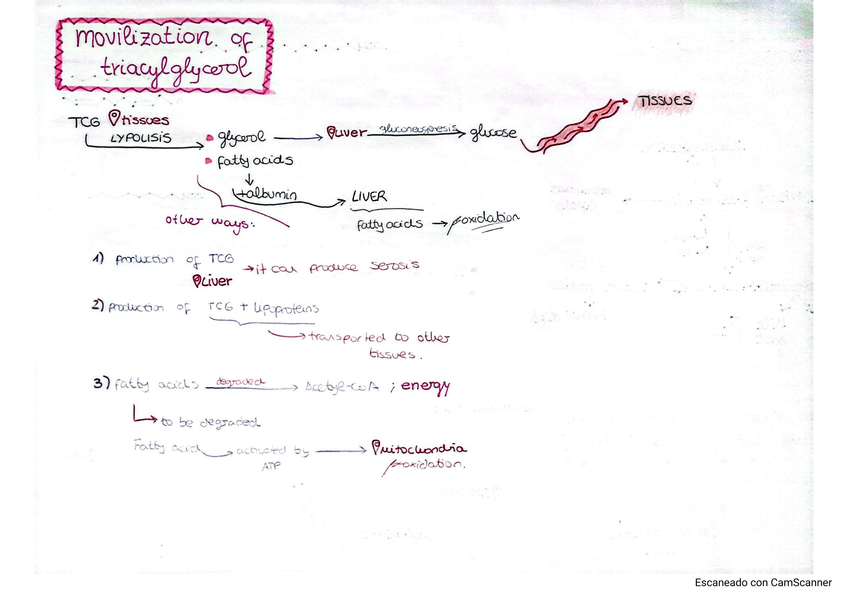 movilization of
triacylglycerol
TCG tissues
LYPOLISIS
glycerol → Liver gluconeogenesis → glucose
TISSUES
fatty acids
+albumin → LIVER
fatty acids → βoxidation
other ways:
1) production of TCG → it can produce serosis
Liver
2) production of TCG + lipoproteins
→ transported to other
tissues.
3) Fatty acids degraded → Acetyl-CoA ; energy
→ to be degraded
Fatty acid → activated by → mitochondria
ATP
βoxidation.
Escaneado con CamScanner